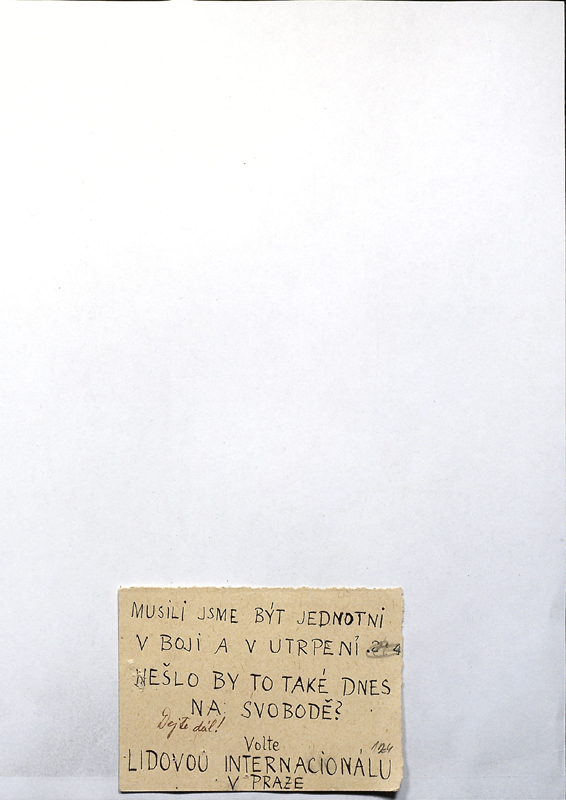 MUSILI JSME BÝT JEDNOTNI
V BOJI A V UTRPENÍ.
NEŠLO BY TO TAKÉ DNES
NA SVOBODĚ?
Dejte dál!
Volte
124
LIDOVOU INTERNACIONÁLU
V PRAZE